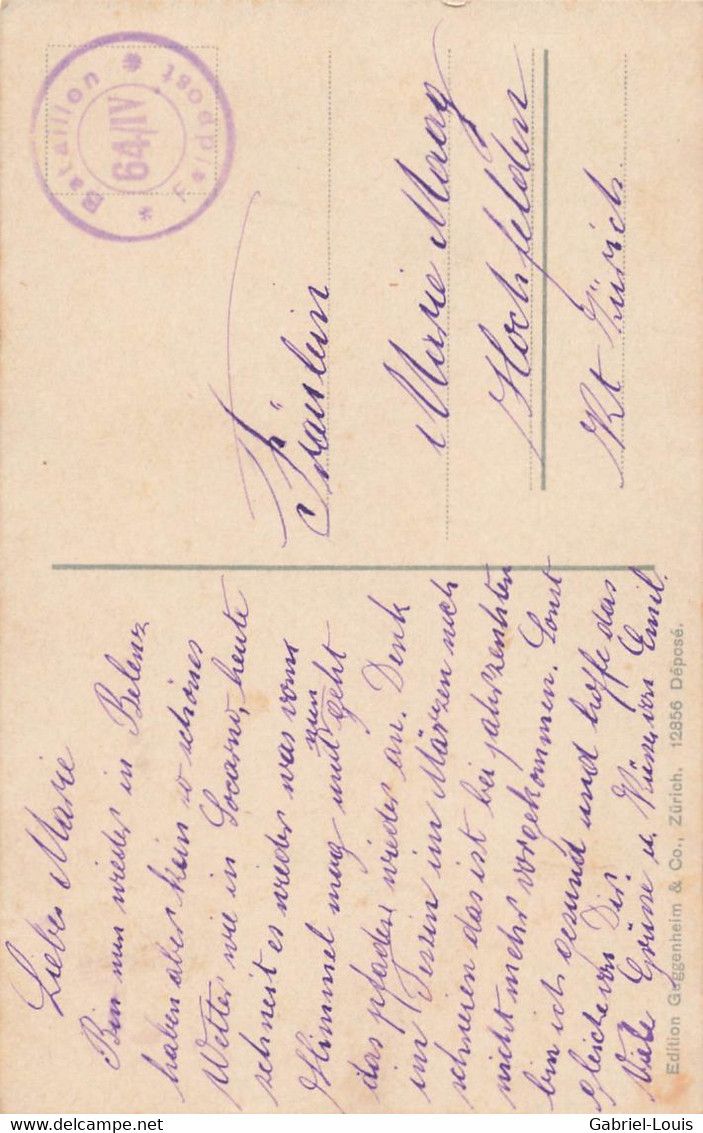 Liebe Marie
Bin nun wieder in Belenz
haben aber kein so schönes
Wetter wie in Locarno, heute
schneit es wieder was vom
Himmel mag und zum geht
das pfaden wieder an. Denk
im Tessin im Märzen noch
schneien das ist bei Jahrzenhten
nicht mehr vorgekommen. Sonst
bin ich gesund und hoffe das
gleiche von Dir.
Viele Grüsse u. Küsse von Emil.
Bataillon
64/IV
Feldpost
Fräulein
Marie Maag
Hochfelden
Kt Zürich.
Edition Guggenheim & Co., Zürich. 12856 Déposé.
delcampe.net
Gabriel-Louis